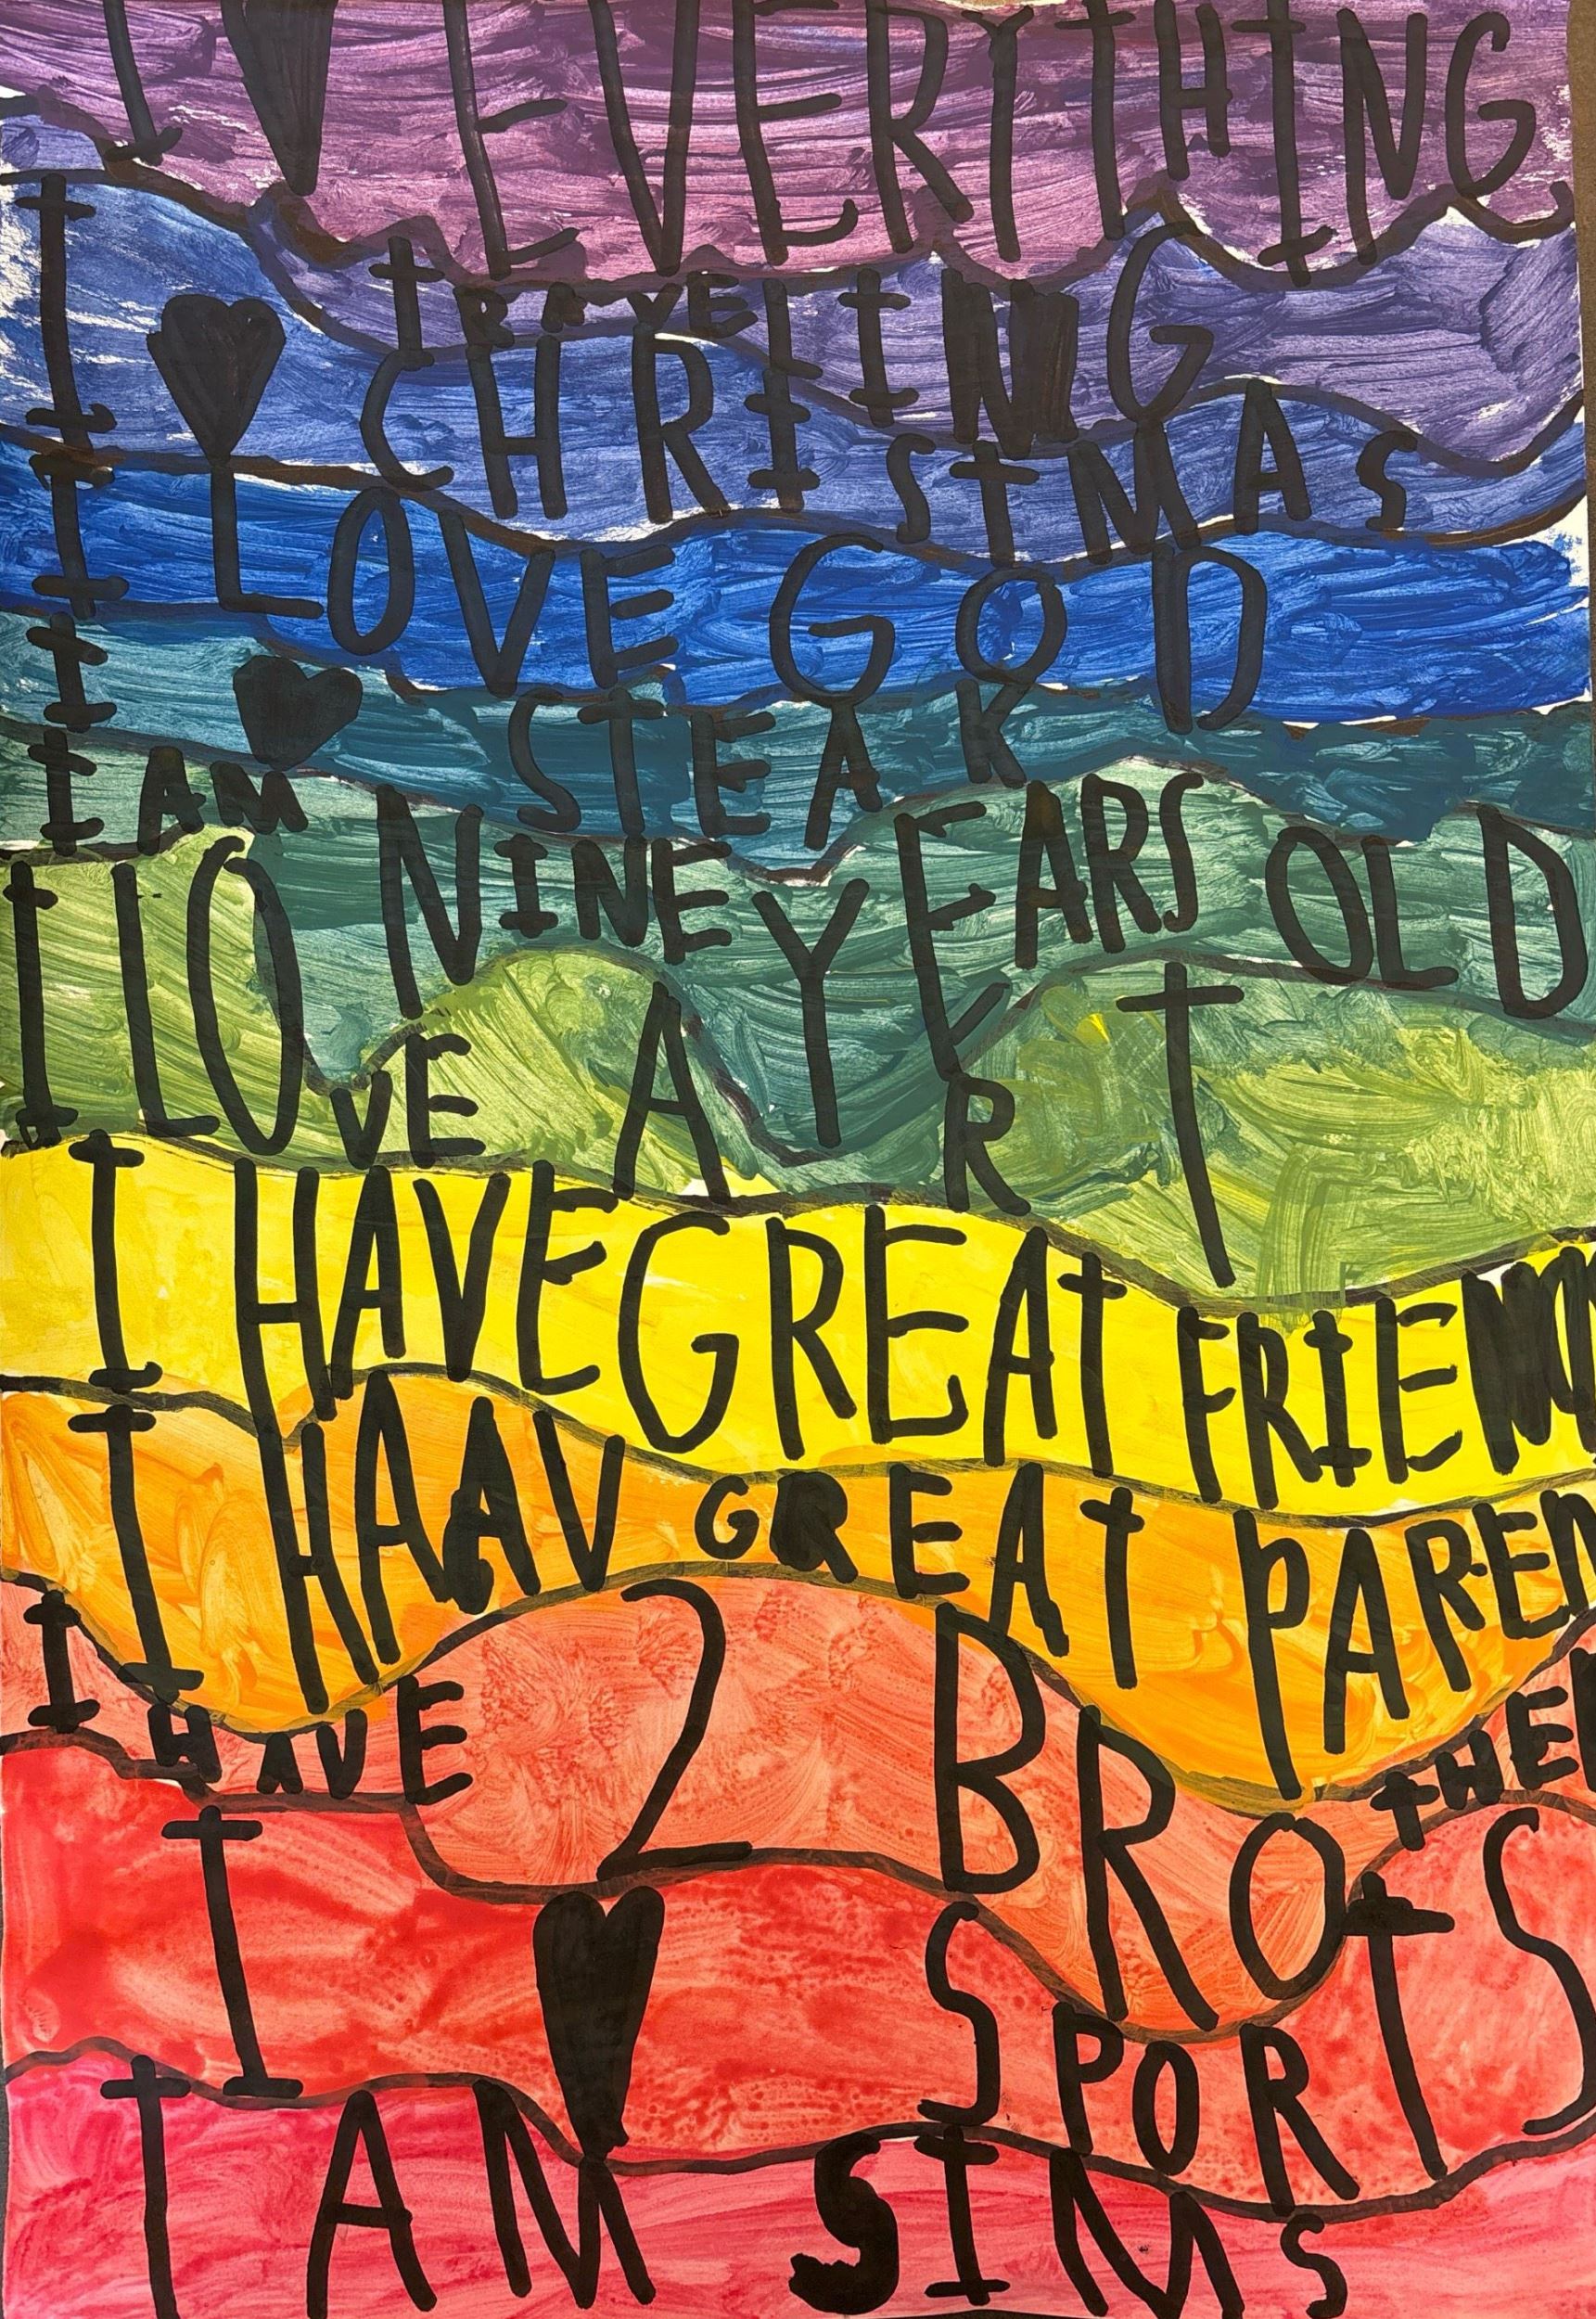 I ♥ EVERYTHING
TRAVELING
I ♥ CHRISTMAS
I LOVE GOD
I ♥ STEAK
I AM NINE YEARS OLD
I LOVE ART
I HAVE GREAT FRIEND
I HAAV GREAT PAREN
I HAVE 2 BROTHER
I ♥ SPORTS
I AM SIMS